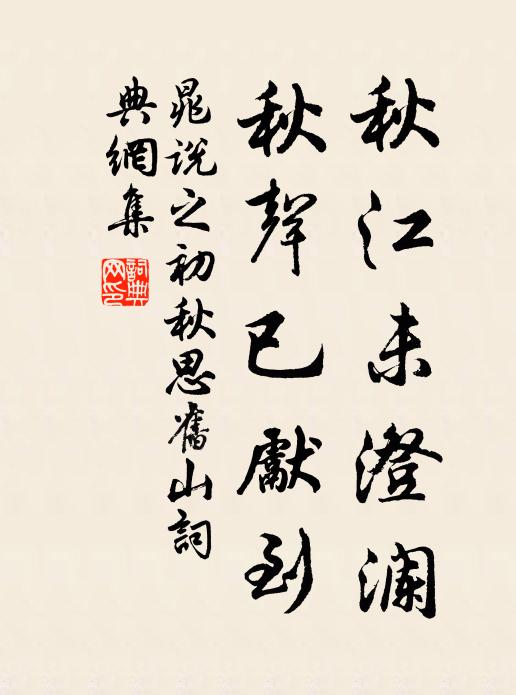 秋江未澄澜
秋聲已獻到
晁说之初秋思舊山詞
典網集
詞典網印